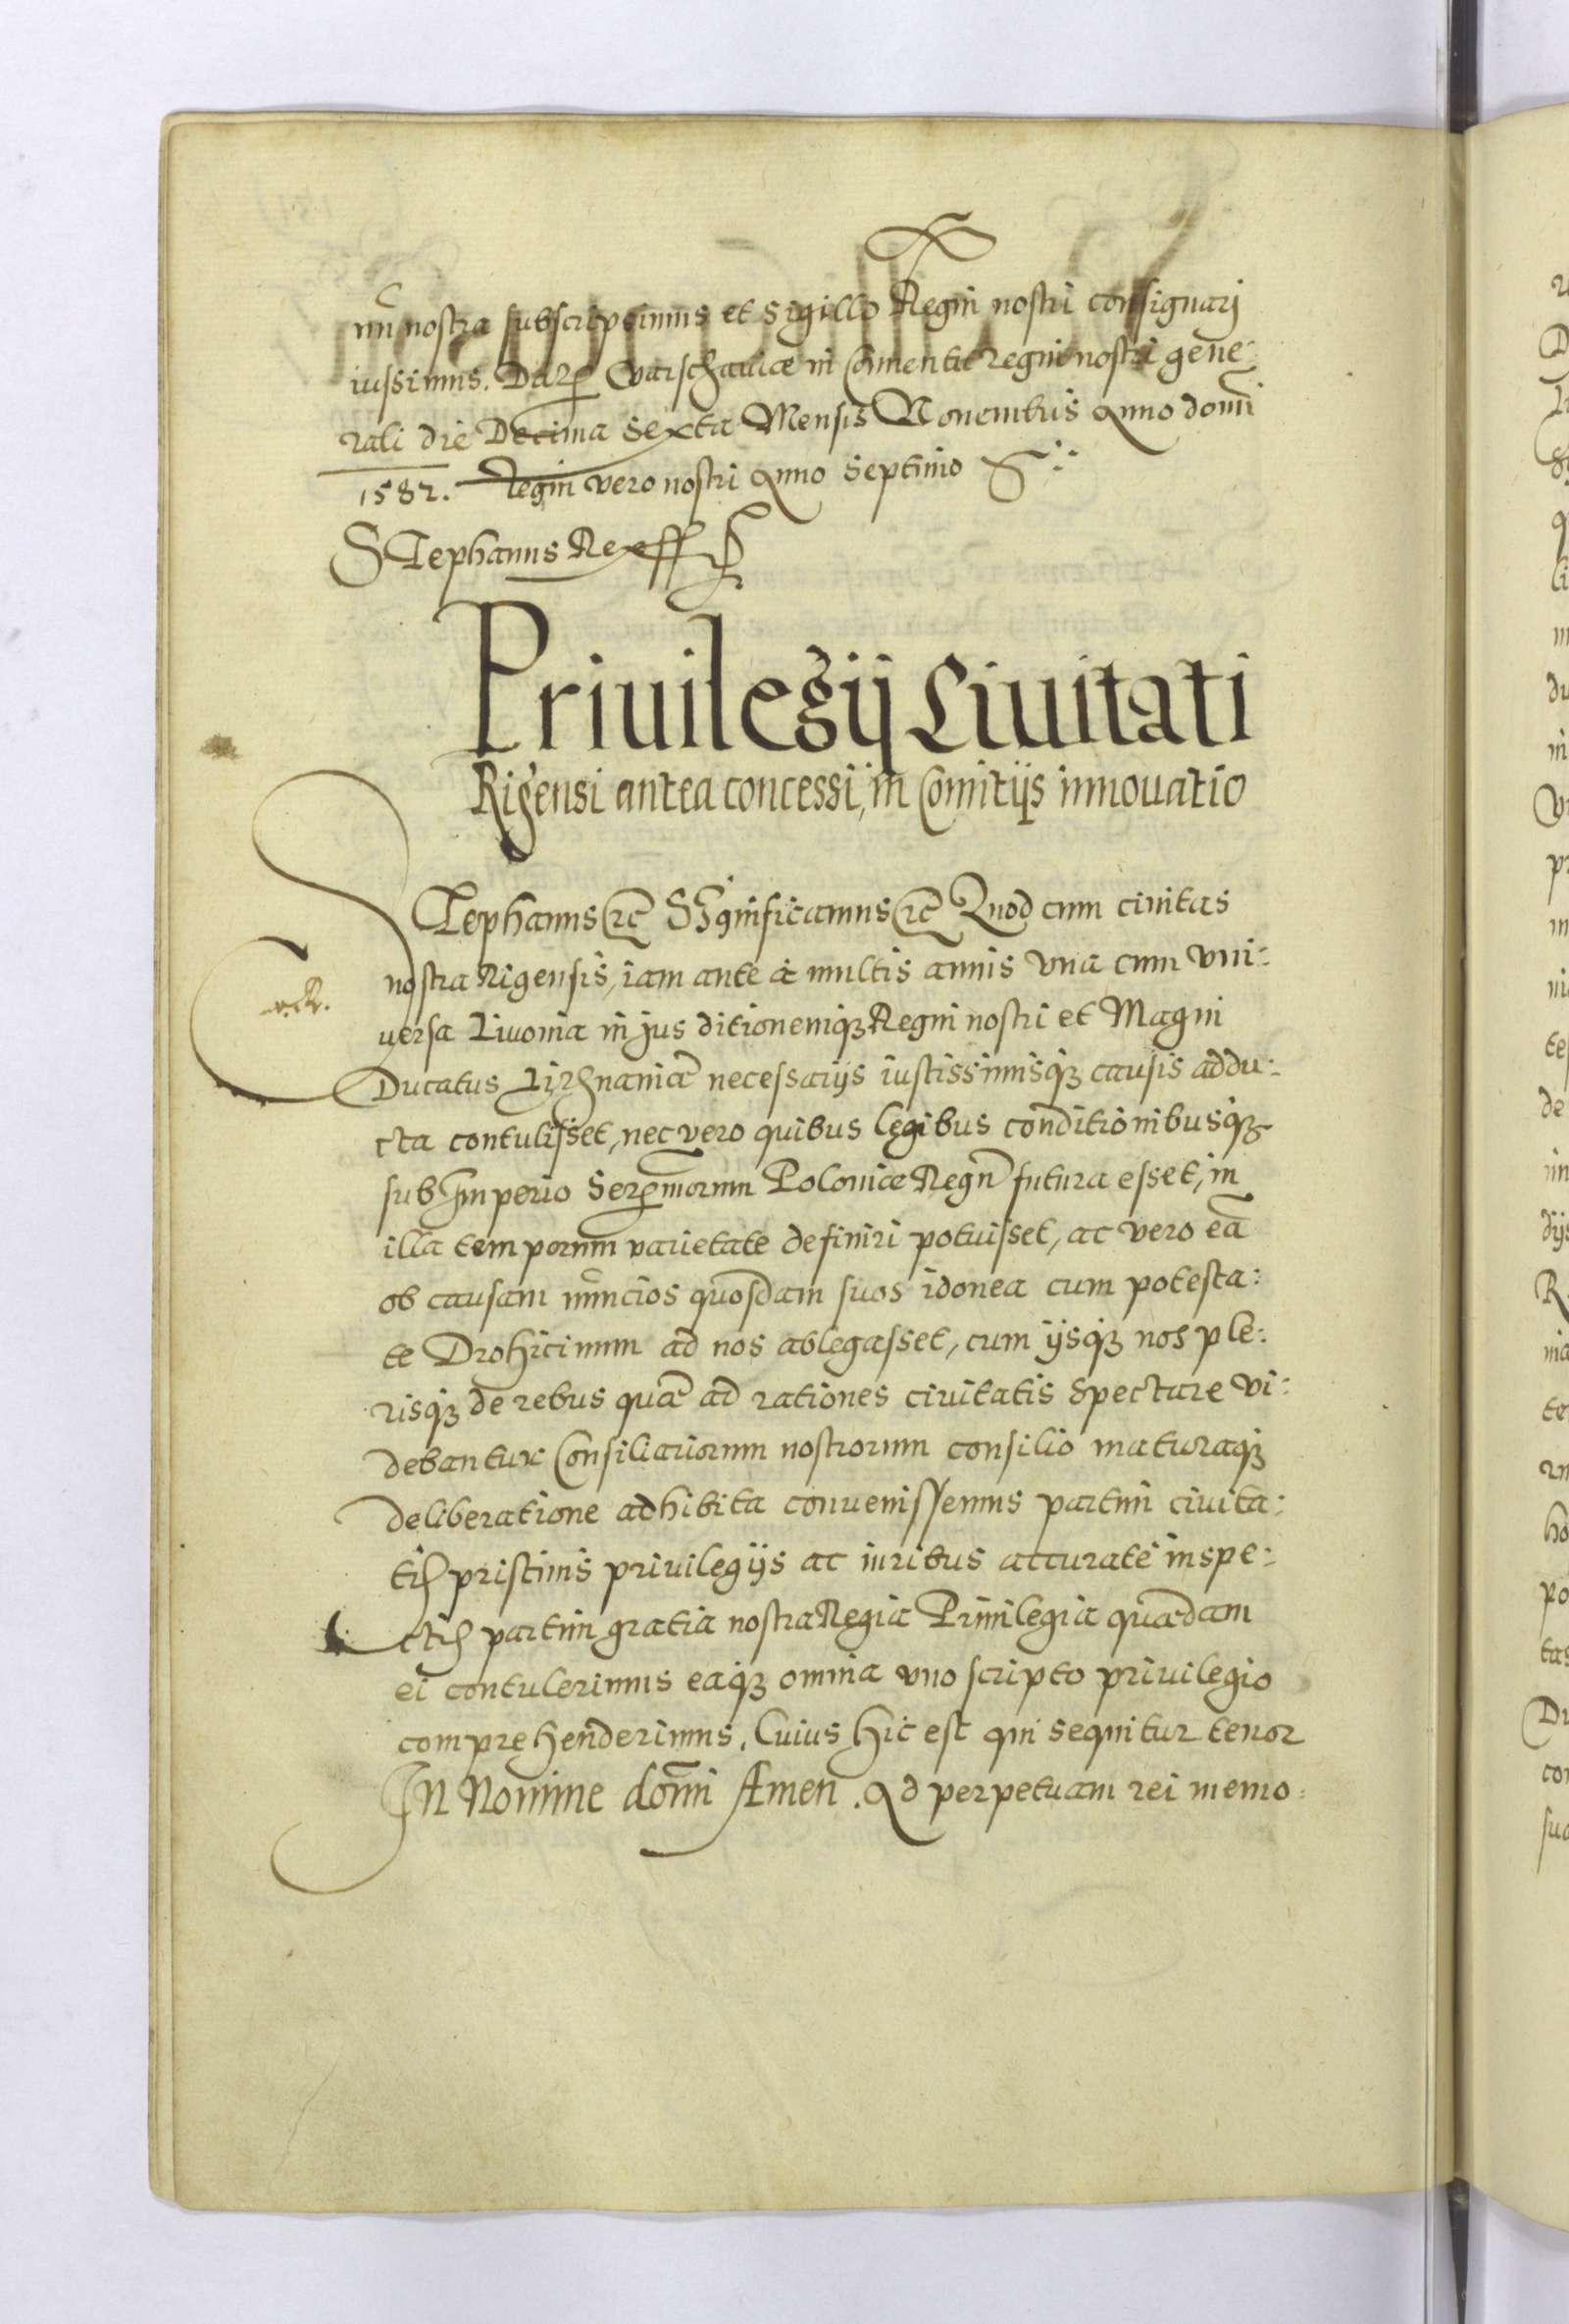 nū nostra subscripsimus et sigillo Regni nostri consignarj
iussimus. Datę Warschauiæ in Conuentu regni nostri gene:
rali die Decima Sexta Mensis Nouembris Anno domī
1582. Regni vero nostri Anno Septimo
STephanus Rex
Priuilegij Ciuitati
Rigensi antea concessi, in Comitijs innouatio
STephanus etc̄ SIgnificamus etc̄ Quod cum ciuitas
nostra Rigensis, iam ante a multis annis vna cum vni:
uersa Liuonia in jus ditionemq3 Regni nostri et Magni
Ducatus Lithuaniæ necessarijs iustissimisq3 causis addu:
cta contulisset, nec vero quibus legibus conditionibusq3
sub Imperio Serēmorum Poloniæ Regū futura esset, in
illa temporum varietate definiri potuisset, ac vero ea
ob causam nuncios quosdam suos idonea cum potesta:
te Drohicinum ad nos ablegasset, cum ijsq3 nos ple:
risq3 de rebus quæ ad rationes ciuitatis spectare vi:
debantur Consiliariorum nostrorum consilio maturaq3
deliberatione adhibita conuenissemus partim ciuita:
tis pristinis priuilegijs ac iuribus accurate inspe:
ctis partim gratia nostra Regia Priuilegia quædam
ei contulerimus eaq3 omnia vno scripto priuilegio
comprehenderimus. Cuius hic est qui sequitur tenor
In Nomine domī Amen. Ad perpetuam rei memo: